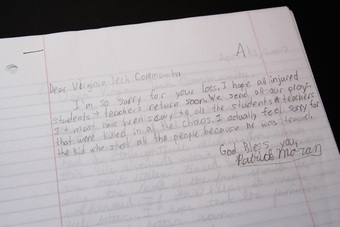 A
Dear Virginia Tech Community
I'm so sorry for your loss. I hope all injured
students + teachers return soon. We send all our pray-
It must have been scary to all the students & teachers
that were killed in all the chaos. I actually feel sorry for
the kid who shot all the people because he was
God Bless you,
Patrick Moran